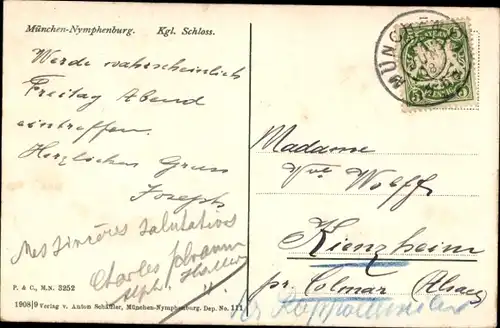 München-Nymphenburg. Kgl. Schloss.
Werde wahrscheinlich
Freitag Abend
eintreffen.
Herzlichen Gruss
Joseph
Mes sincères salutations
Charles
Alph.
P. & C., M.N. 3252
1908|9 Verlag v. Anton Schäffler, München-Nymphenburg. Dep. No. 111
MÜNCHEN
BAYERN
5 5
Madame
Vve Wolff
Kienzheim
pr. Colmar (Alsace)
Kr Rappoltsweiler